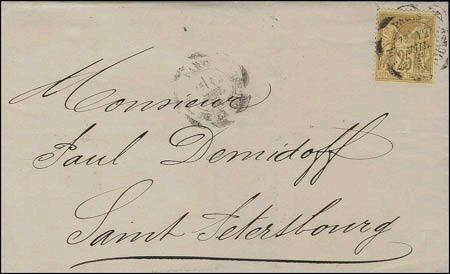 PARIS
25
PARIS
Monsieur
Paul Demidoff
Saint Petersbourg